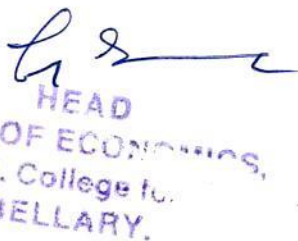 HEAD
OF ECONOMICS,
. College fo
BELLARY.